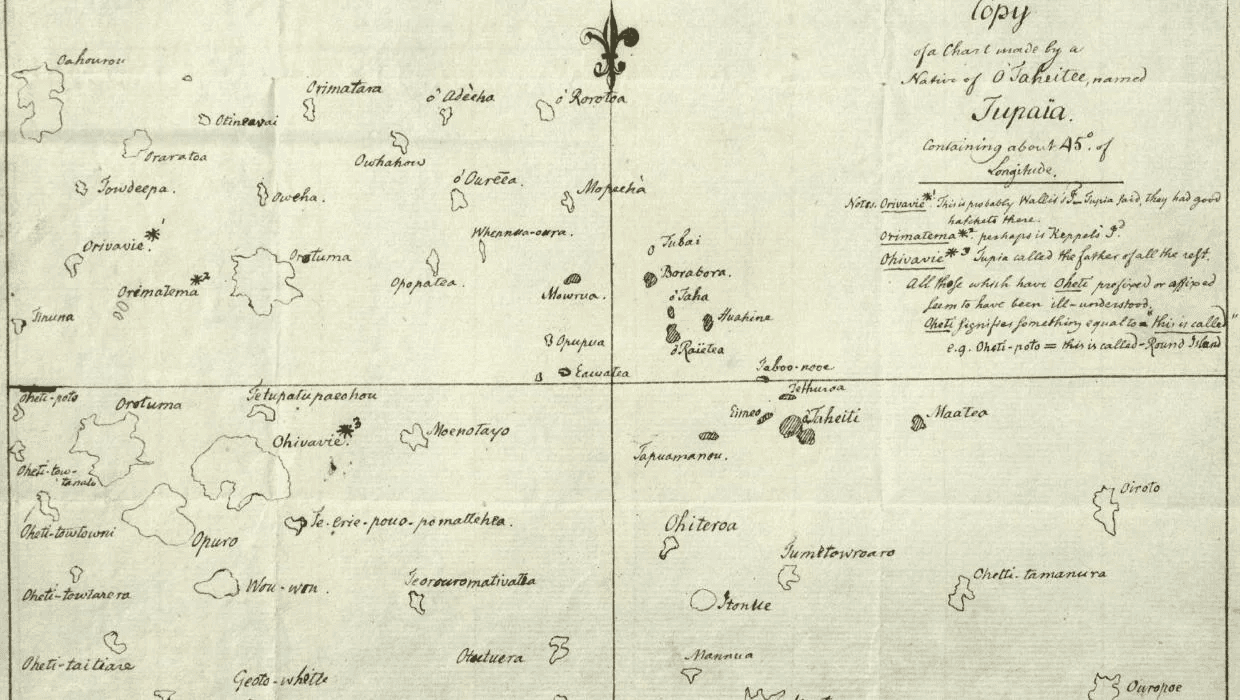 Copy
of a Chart made by a
Native of O'Taheitee, named
Tupaïa.
Containing about 45° of
Longitude.
Notes. Orivavie *1. This is probably Wallis's Id_ Tupia said, they had good
hatchets there.
Orimatema *2. perhaps is Keppel's Id.
Ohivavie *3 Tupia called the father of all the rest.
All those which have Oheti prefixed or affixed
seem to have been ill-understood.
Oheti signifies something equal to = "this is called"
e.g. Oheti-poto = this is called-Round Island
Oahourou
Orimatara
ó Adècha
ó Rorotoa
Otineavai
Oraratoa
Owhahow
Towdeepa.
Oweha.
ó'Oureea.
Mopechà
Whennua-oura.
Orivavie *1
Orotuma
Tubai
Orematema *2
Opopatea.
Borabora.
Mowrua.
ó Taha
Tinuna
Huahine
Opupua
ó Raïetea
Eawatea
Taboo-nooe
Oheti-poto
Tetupatupaeohou
Tethuroa
Orotuma
Eimeo
óTaheiti
Maatea
Ohivavie *3
Moenotayo
Tapuamanou.
Oheti-tow-
Oiroto
Oheti-towtowni
Opuro
Te-erie-pouo-pomattehea.
Ohiteroa
Tumetowroaro
Oheti-towtarera
Wou-wou
Teorouromativatea
Itonue
Ohetti-tamanura
Oheti-taitiare
Otootuera
Mannua
Geoto-whitte
Ouropoe